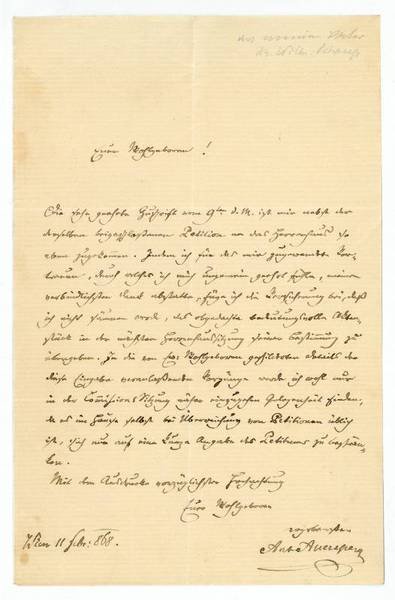 Euer Wohlgeboren!
Die sehr geehrte Zuschrift vom 9ten d. M. ist mir nebst der
derselben beigeschlossenen Petition an das Herrenhaus so
eben zugekommen. Indem ich für das mir zugewandte Ver-
trauen, durch welches ich mich ungemein geehrt fühle, meinen
verbindlichsten Dank abstatte, füge ich die Versicherung bei, daß
ich nicht säumen werde, das obgedachte bedeutungsvolle Akten-
stück in der nächsten Herrenhaussitzung seiner Bestimmung zu
übergeben. In die von Euer Wohlgeboren geschilderten Details der
diese Eingabe veranlassenden Vorgänge werde ich wohl nur
in der Commissions Sitzung näher einzugehen Gelegenheit finden,
da es im Hause selbst bei Überreichung von Petitionen üblich
ist, sich nur auf eine kurze Angabe des Petitums zu beschrän-
ken.
Mit dem Ausdrucke vorzüglichster Hochachtung
Euer Wohlgeboren
ergebenster
Ant. Auersperg
Wien 11 Febr. 868.